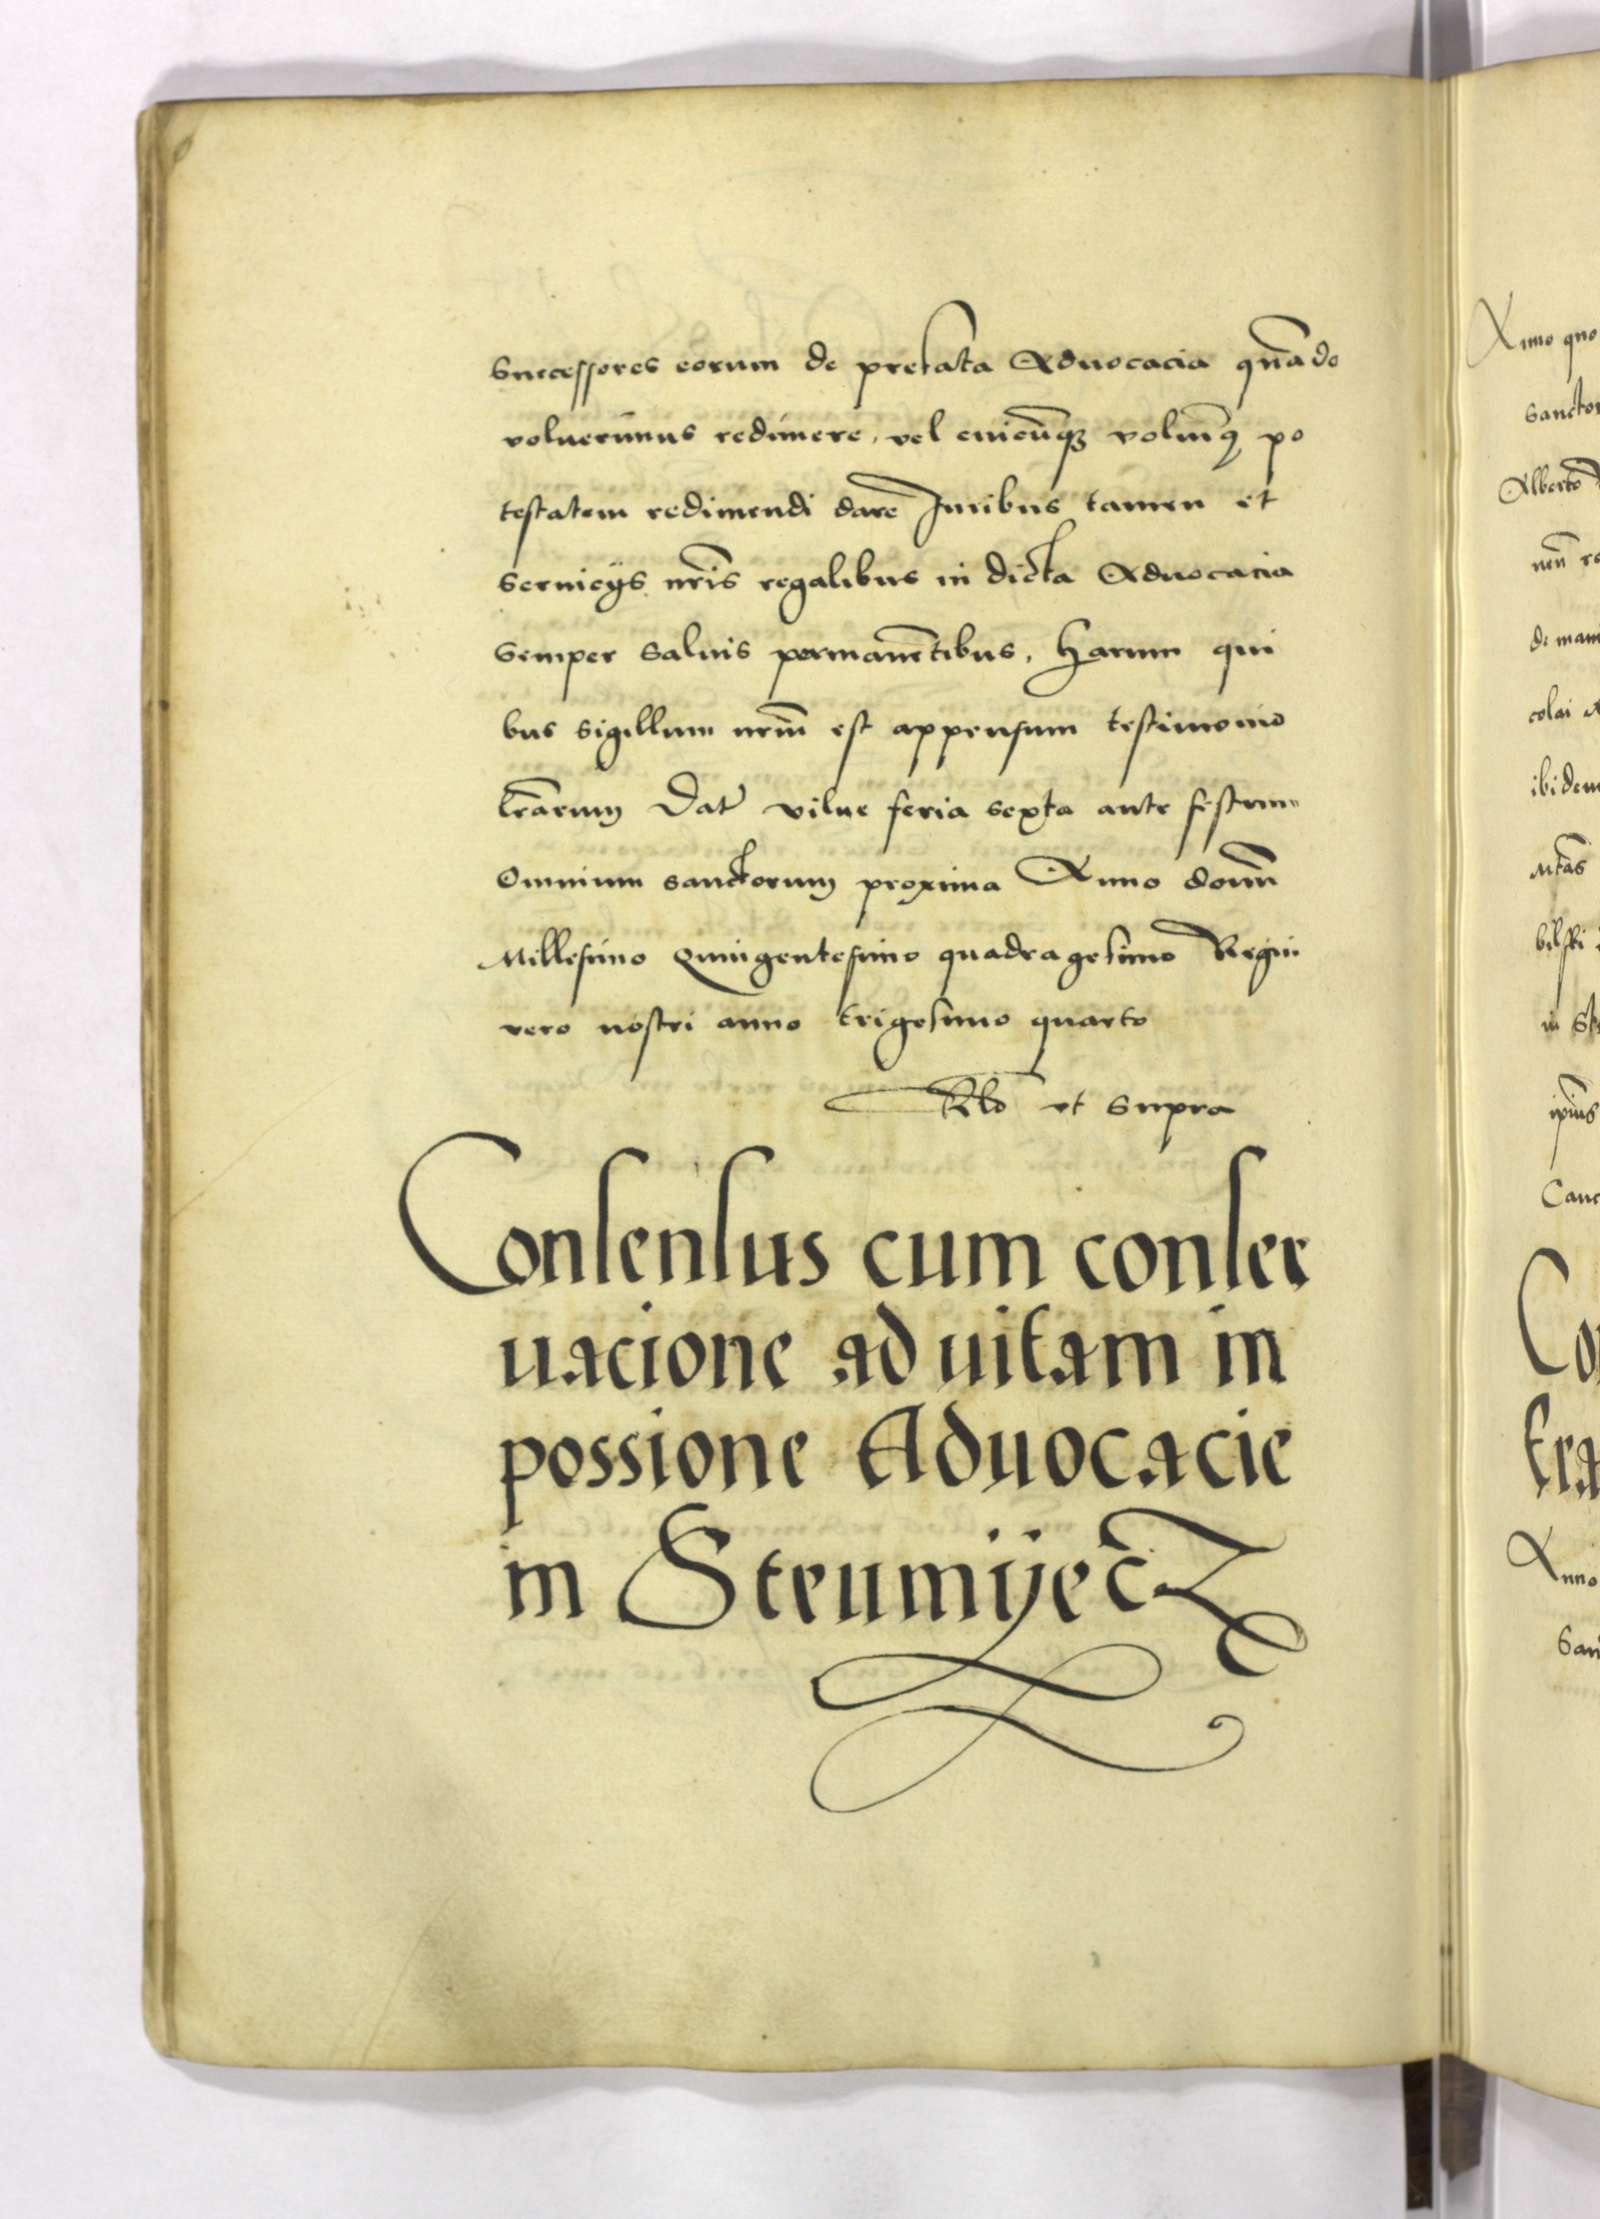 Successores eorum de prefata Aduocacia qn̄ado
voluerimus redimere, vel cuicūqꝫ voluim9 po
testatem redimendi dare Iuribus tamen et
seruicijs nr̄is regalibus in dicta Aduocacia
semper saluis permanētibus, Harum qui
bus sigillum nrm̄ est appensum testimonio
lr̄arum Dat vilne feria sexta ante festum
Omnium sanctorum proxima Anno domī
Millesimo Quingentesimo quadragesimo Regni
vero nostri anno trigesimo quarto
Rlo ut supra
Consensus cum conser
uacione ad uitam in
possione Aduocacie
in Strumijec̄z
Anno quo
Sanctor
Alberto
de man
colai
ibidem
in
Co
tra
Anno
San